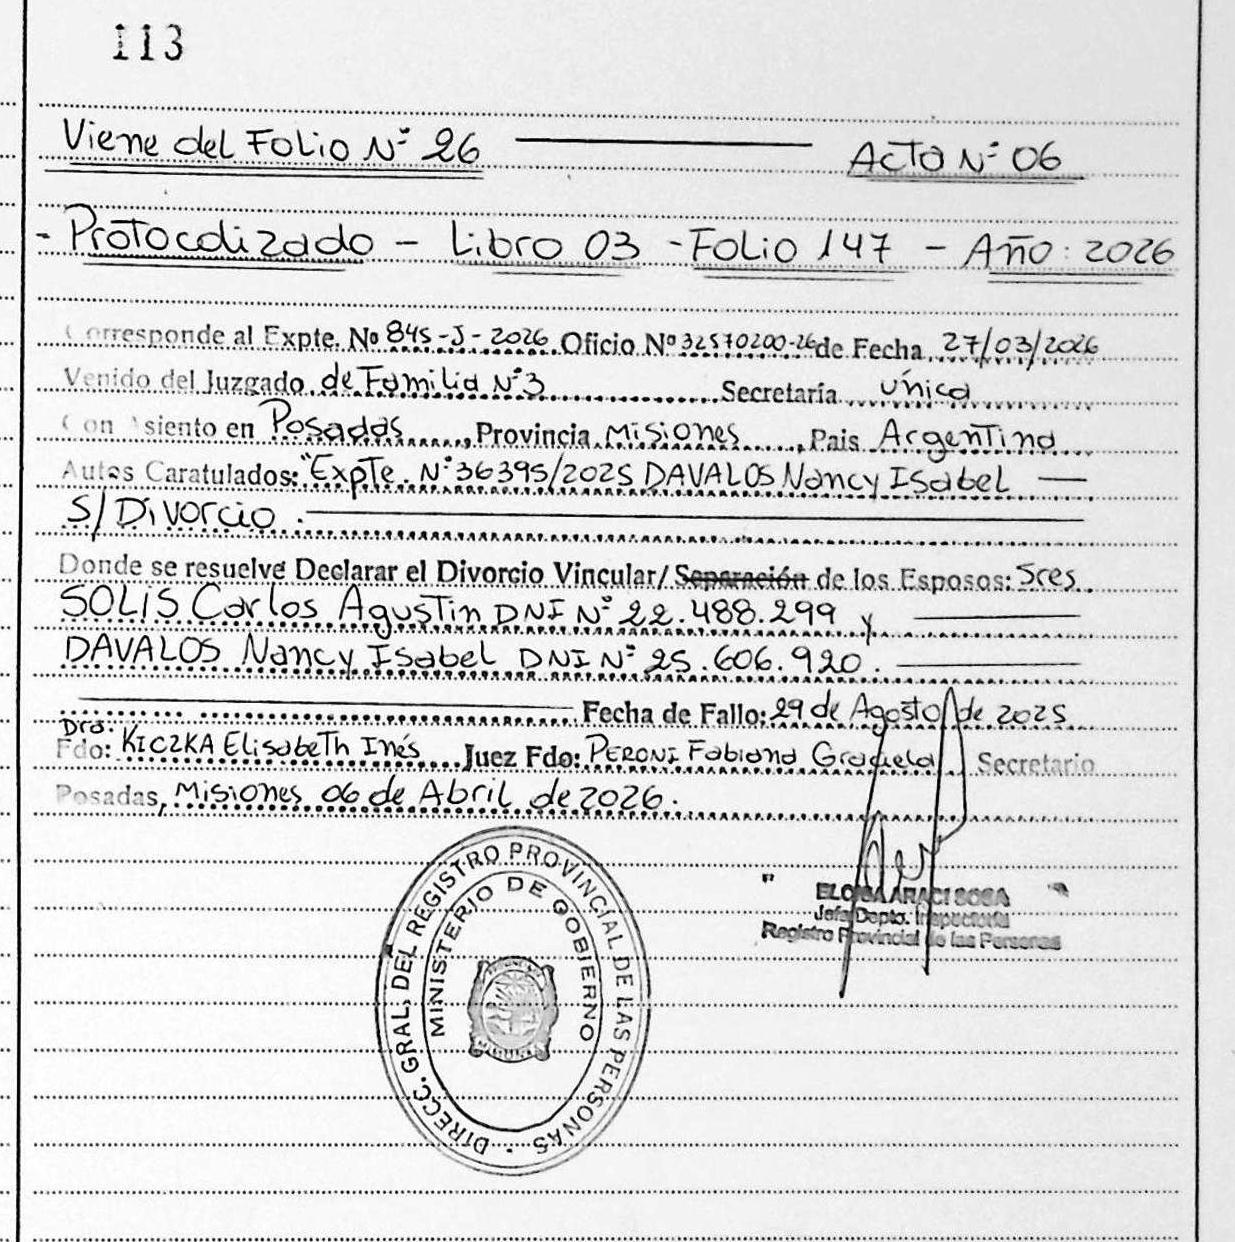 113
Viene del Folio N° 26 Acta N° 06
- Protocolizado - Libro 03 - Folio 147 - Año: 2026
Corresponde al Expte. Nº 845-J-2026 Oficio Nº 32570200-26 de Fecha 27/03/2026
Venido del Juzgado de Familia N°3 Secretaría única
Con Asiento en Posadas, Provincia Misiones, Pais Argentina
Autos Caratulados: "Expte. N°36395/2025 DAVALOS Nancy Isabel
S/ Divorcio.
Donde se resuelve Declarar el Divorcio Vincular/Separación de los Esposos: Sres.
SOLIS Carlos Agustin DNI N° 22.488.299 y
DAVALOS Nancy Isabel DNI N° 25.606.920.
Fecha de Fallo: 29 de Agosto de 2025
Dra.
Fdo: KICZKA Elisabeth Inés Juez Fdo: PERONI Fabiana Graciela Secretario
Posadas, Misiones 06 de Abril de 2026.
DIRECC. GRAL. DEL REGISTRO PROVINCIAL DE LAS PERSONAS
MINISTERIO DE GOBIERNO
MISIONES
ELOISA ARACI SOSA
Jefa Depto. Inspectoría
Registro Provincial de las Personas